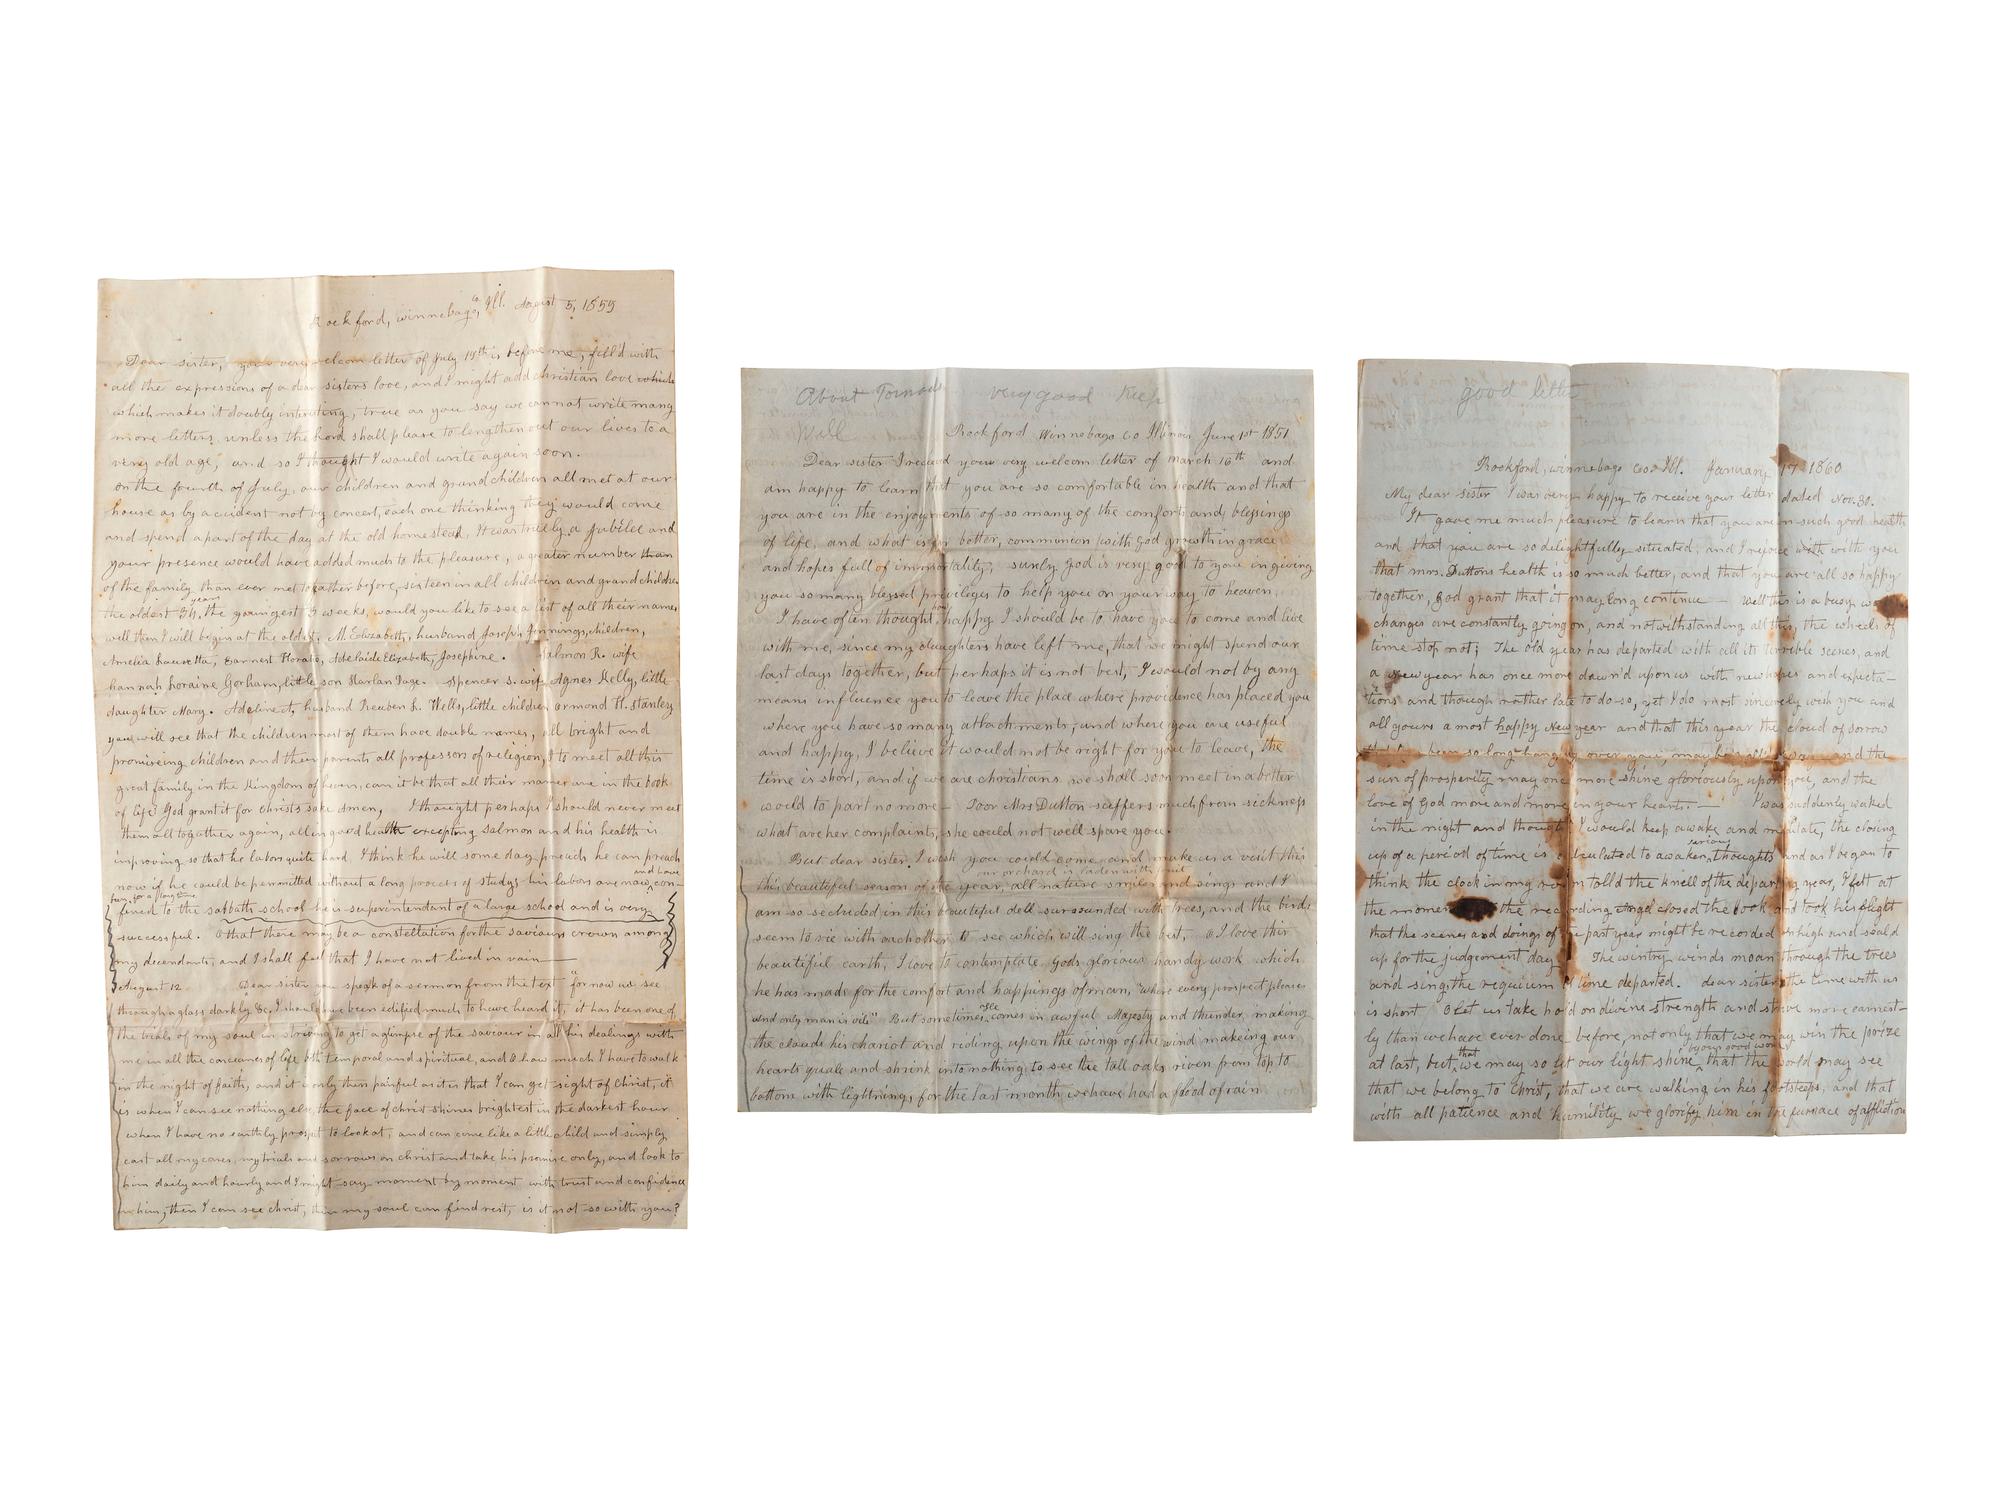 Rockford, winnebago, co Ill. August 5, 1859
Dear sister, your very welcom letter of July 19th is before me, fill'd with
all the expressions of a dear sisters love, and I might add christian love which
which makes it doubly intresting, true as you say we cannot write many
more letters unless the Lord shall please to lengthen out our lives to a
very old age, and so I thought I would write again soon.
on the fourth of July, our children and grand children all met at our
house as by accident not by concert, each one thinking they would come
and spend a part of the day at the old homestead, It was truely a Jubilee and
your presence would have added much to the pleasure, a greater number than
of the family than ever met together before, sixteen in all children and grand children
the oldest 34 years, the youngest 3 weeks, would you like to see a list of all their names
well then I will begin at the oldest, M. Elizabeth, husband Joseph Jennings, children,
Amelia Earnest Horatio, Adelaide Elizabeth, Josephine. Salmon R. wife
hannah Loraine Gorham, little son Harlan Page. Spencer S. wife Agnes Kelly, little
daughter Mary. Adeline husband Reuben L. Wells, little children ormond H. stanley
you will see that the children most of them have double names, all bright and
promiseing children and their parents all professors of religion, to meet all this
great family in the kingdom of heven, can it be that all their names are in the book
of life? God grant it for Christs sake Amen, I thought perhaps I should never meet
them all together again, all in good health excepting Salmon and his health is
improving so that he labors quite hard. I think he will some day preach he can preach
now if he could be permitted without a long proces of study, his labors are now, and have con-
been for a long time
fined to the sabbath school he is superintendant of a large school and is very
successful. O that there may be a constellation for the saviours crown among
my decendants, and I shall feel that I have not lived in vain—
August 12 Dear sister you speak of a sermon from the text "for now we see
through a glass darkly &c, I should have been edified much to have heard it, it has been one of
the trials of my soul in striving to get a glimpse of the saviour in all his dealings with
me in all the of life both temporal and spiritual, and O how much I have to walk
in the night of faith, and it is only then painful as it is that I can get sight of Christ, it
is when I can see nothing else the face of christ shines brightest in the darkest hour
when I have no earthly prospect to look at, and can come like a little child and simply
cast all my cares, my trials and sorrows on christ and take his promise only, and look to
him daily and hourly and I might say moment by moment with trust and confidence
in him, then I can see christ, then my soul can find rest, is it not so with you?
About Tornado very good Keep
Will Rockford Winnebago Co Illinois June 1st 1851
Dear sister I received your very welcom letter of march 16th and
am happy to learn that you are so comfortable in health and that
you are in the enjoyments of so many of the comforts and blessings
of life, and what is far better, communion with God growth in grace
and hopes full of immortality, surely God is very good to you in giving
you so many blessed privileges to help you on your way to heaven,
I have often thought how happy I should be to have you to come and live
with me, since my daughters have left me, that we might spend our
last days together, but perhaps it is not best, I would not by any
means influence you to leave the place where providence has placed you
where you have so many attachments, and where you are useful
and happy, I believe it would not be right for you to leave, the
time is short, and if we are christians we shall soon meet in a better
world to part no more— Poor Mrs Dutton suffers much from sickness
what are her complaints, she could not well spare you.
But dear sister, I wish you could come and make us a visit this
our orchard is laden with fruit
this beautiful season of the year, all nature smiles and sings and I
am so secluded in this beautiful dell surrounded with trees, and the birds
seem to vie with each other to see which will sing the best, O I love this
beautiful earth, I love to contemplate Gods glorious handy work which
he has made for the comfort and happiness of man, "where every prospect pleases
and only man is vile" But sometimes he comes in awful Majesty and thunder, making
the clouds his chariot and riding upon the wings of the wind makeing our
hearts quale and shrink into nothing to see the tall oaks riven from top to
bottom with lightning, for the last month we have had a flood of rain
good letter
Rockford, winnebago Coo Ill. January 17 1860
My dear sister I was very happy to receive your letter dated Nov. 30.
It gave me much pleasure to learn that you are in such good health
and that you are so delightfully situated, and I rejoice with with you
that mrs. Duttons health is so much better, and that you are all so happy
together, god grant that it may long continue — Well this is a busy
changes are constantly going on, and notwithstanding all this, the wheels of
time stop not; The old year has departed with all its terrible scenes, and
a new year has once more dawn'd upon us with new hopes and expecta-
tions and though rather late to do so, yet I do most sincerely wish you and
all yours a most happy New year and that this year the cloud of sorrow
that has been so long hanging over you, may be away and the
sun of prosperity may once more shine gloriously upon you, and the
love of God more and more in your heart. — I was suddenly waked
in the night and thought I would keep awake and meditate, the closing
up of a period of time is calculated to awaken serious thoughts and as I began to
think the clock in my room told the knell of the departing year, I felt at
the moment the recording Angel closed the book and took his flight
that the scenes and doings of the past year might be recorded on high and seald
up for the judgement day The wintry winds moan through the trees
and sing the requium of time departed. dear sister the time with us
is short O Let us take hold on divine strength and strive more earnest-
ly than we have ever done before, not only that we may win the prize
at last, but that we may so let our light shine by our good works that the world may see
that we belong to Christ, that we are walking in his footsteps, and that
with all patience and humility we glorify him in the furnace of affliction